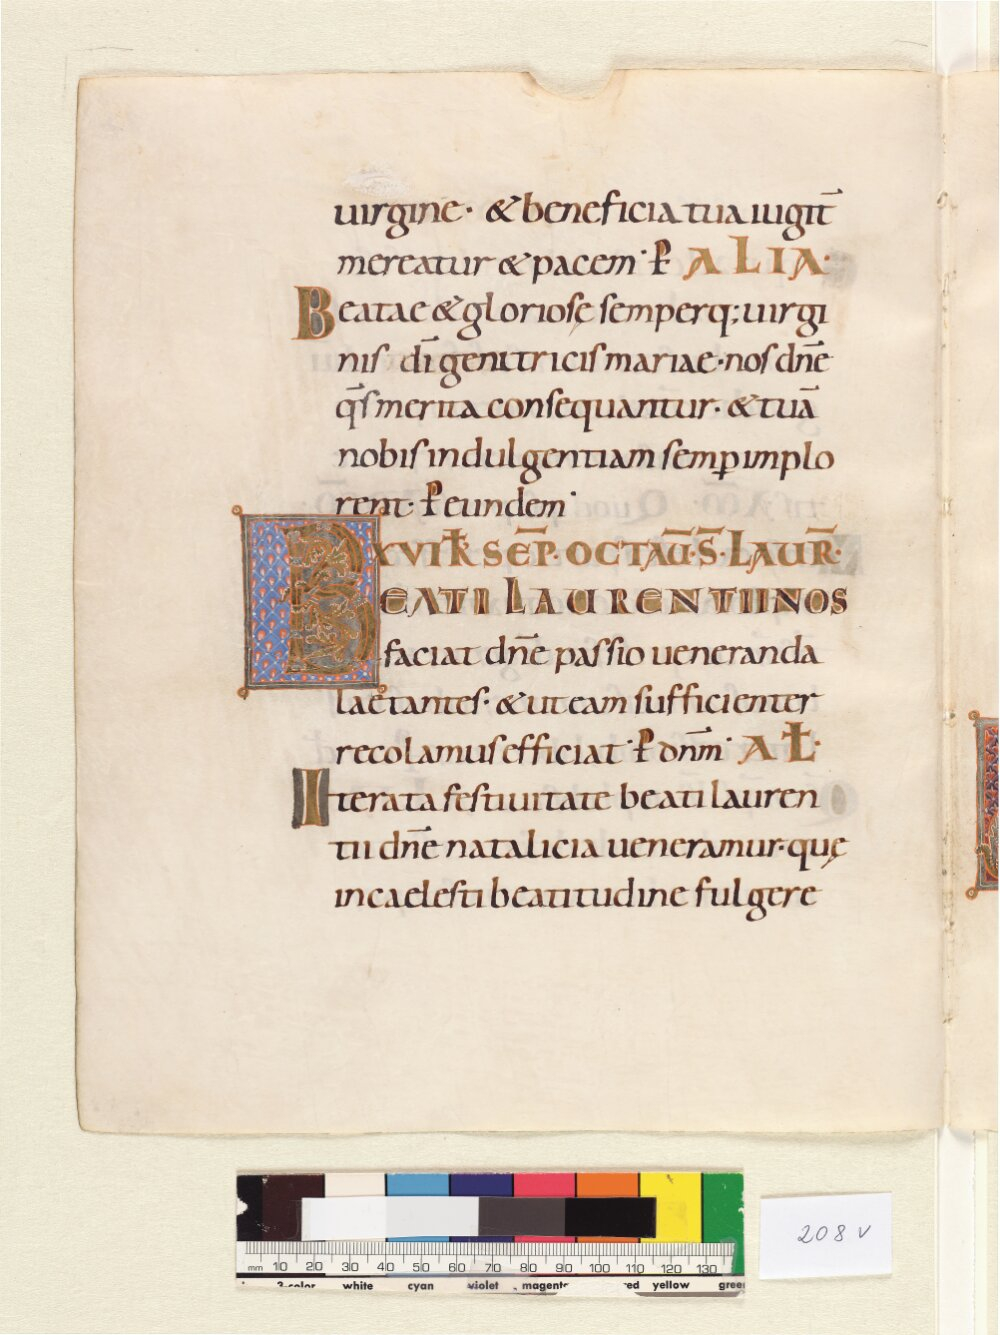 uirgine· & beneficia tua iugit̄
mereatur & pacem· P̄ ALIA·
Beatae & gloriosę semperq; uirgi
nis dī genitricis mariae· nos dn̄e
q̄s merita consequantur· & tuā
nobis indulgentiam semp̱ implo
rent· P̄ eundem·
XVII K̄ SEP̄· OCTAŪ· S̄· LAUR̄·
BEATI LAURENTII NOS
faciat dn̄e passio ueneranda
laetantes· & ut eam sufficienter
recolamus efficiat· P̄ dnm̄· AL̄·
Iterata festiuitate beati lauren
tii dn̄e natalicia ueneramur· quę
in caelesti beatitudine fulgere
208 v
mm 10 20 30 40 50 60 70 80 90 100 110 120 130
3-color white cyan violet magenta red yellow green